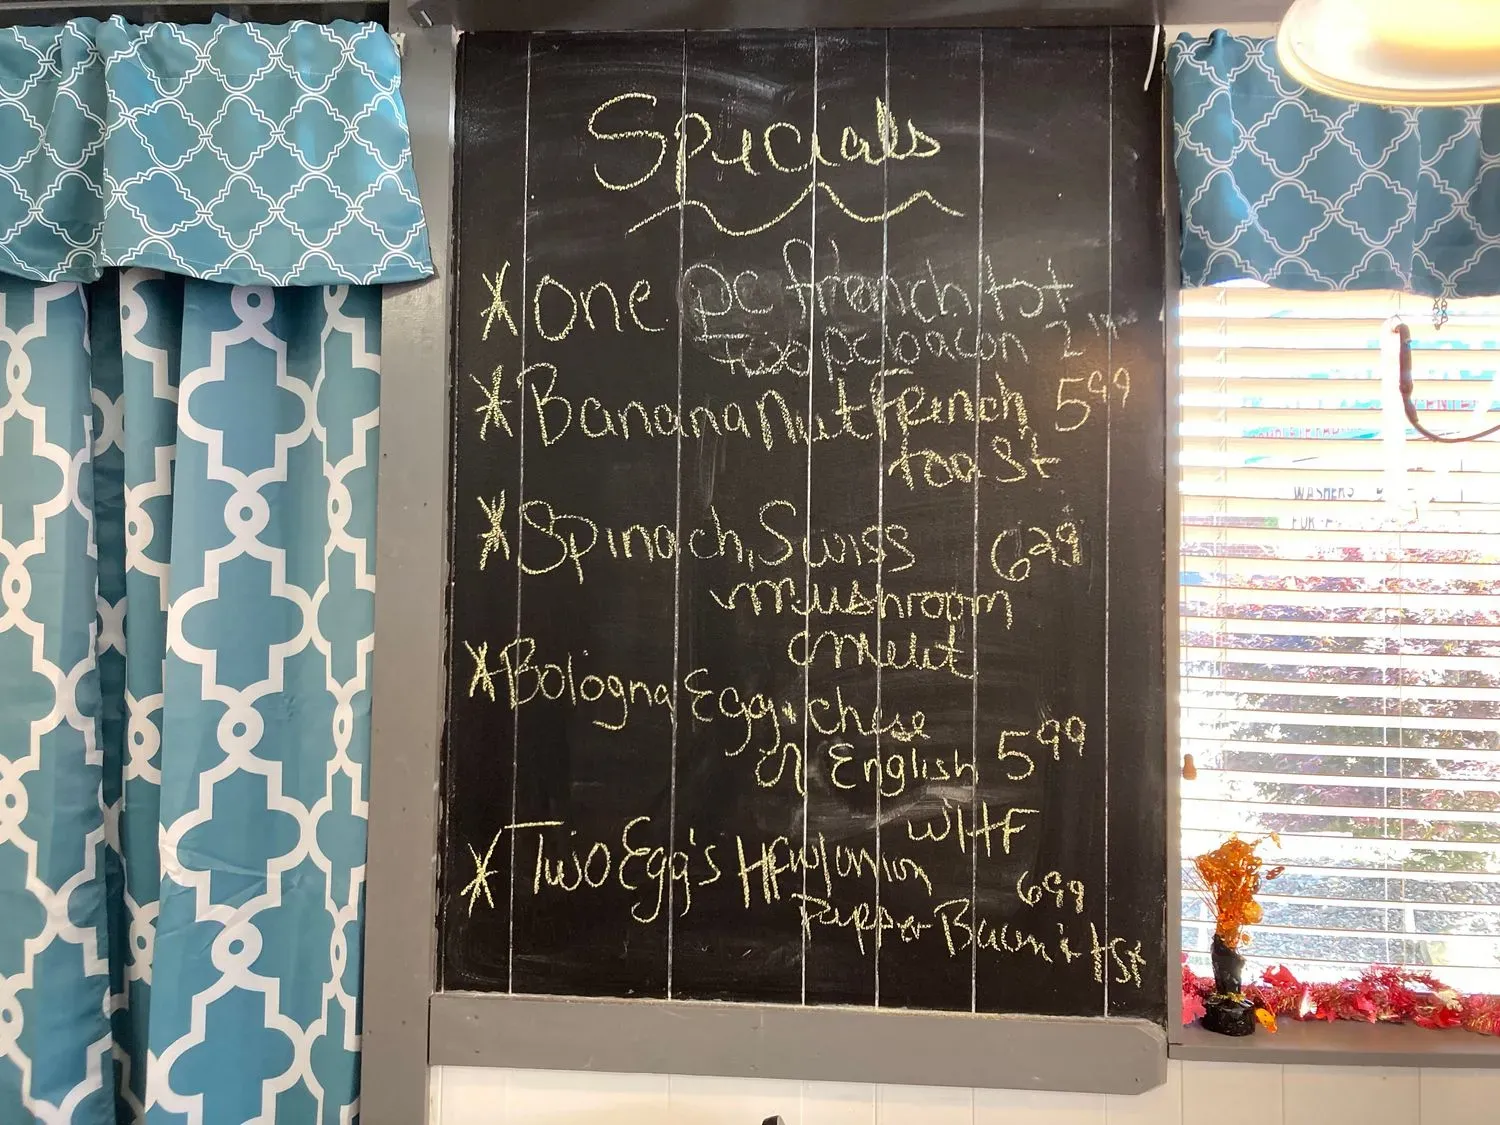 Specials
* One pc french tst
two pc bacon 2
* Banana Nut French 5 99
toast
* Spinach, Swiss 6 29
mushroom
melt
* Bologna Egg & chese
on English 5 99
w/HF
* Two Egg's HF w/onion 6 99
Pepper Bacon & tst
WASHERS
FOR